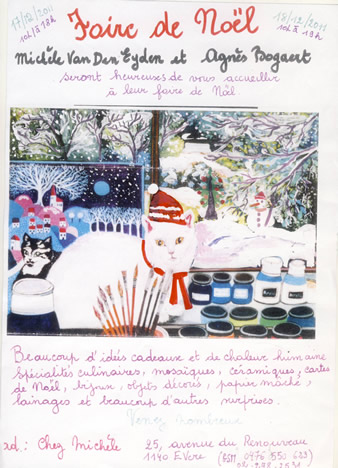 17/12/2011 10h/à 18h
Foire de Noël
18/12/2011 10h à 19h
Michèle Van Den Eyden et Agnès Bogaert
seront heureuses de vous accueillir
à leur foire de Noël
Beaucoup d'idés cadeaux et de chaleur humaine
spécialités culinaires, mosaïques, céramiques, cartes
de Noël, bijoux, objets décorés, papier maché,
lainages et beaucoup d'autres surprises.
Venez nombreux
ad: Chez Michèle 25, avenue du Renouveau
1140 EVere (GSM 0476 550 623